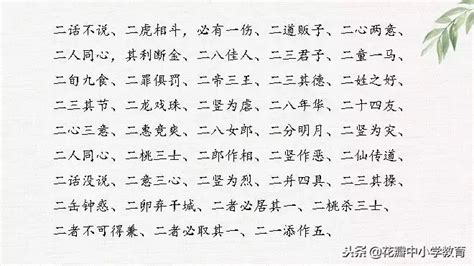 二话不说、二虎相斗，必有一伤、二道贩子、二心两意、
二人同心，其利断金、二八佳人、二三君子、二童一马、
二旬九食、二罪俱罚、二帝三王、二三其德、二姓之好、
二三其节、二龙戏珠、二竖为虐、二八年华、二十四友、
二心三意、二惠竞爽、二八女郎、二分明月、二竖为灾、
二人同心、二桃三士、二郎作相、二竖作恶、二仙传道、
二话没说、二意三心、二竖为烈、二并四具、二三其操、
二缶钟惑、二卵弃干城、二者必居其一、二桃杀三士、
二者不可得兼、二者必取其一、二一添作五、
头条@花瓣中小学教育